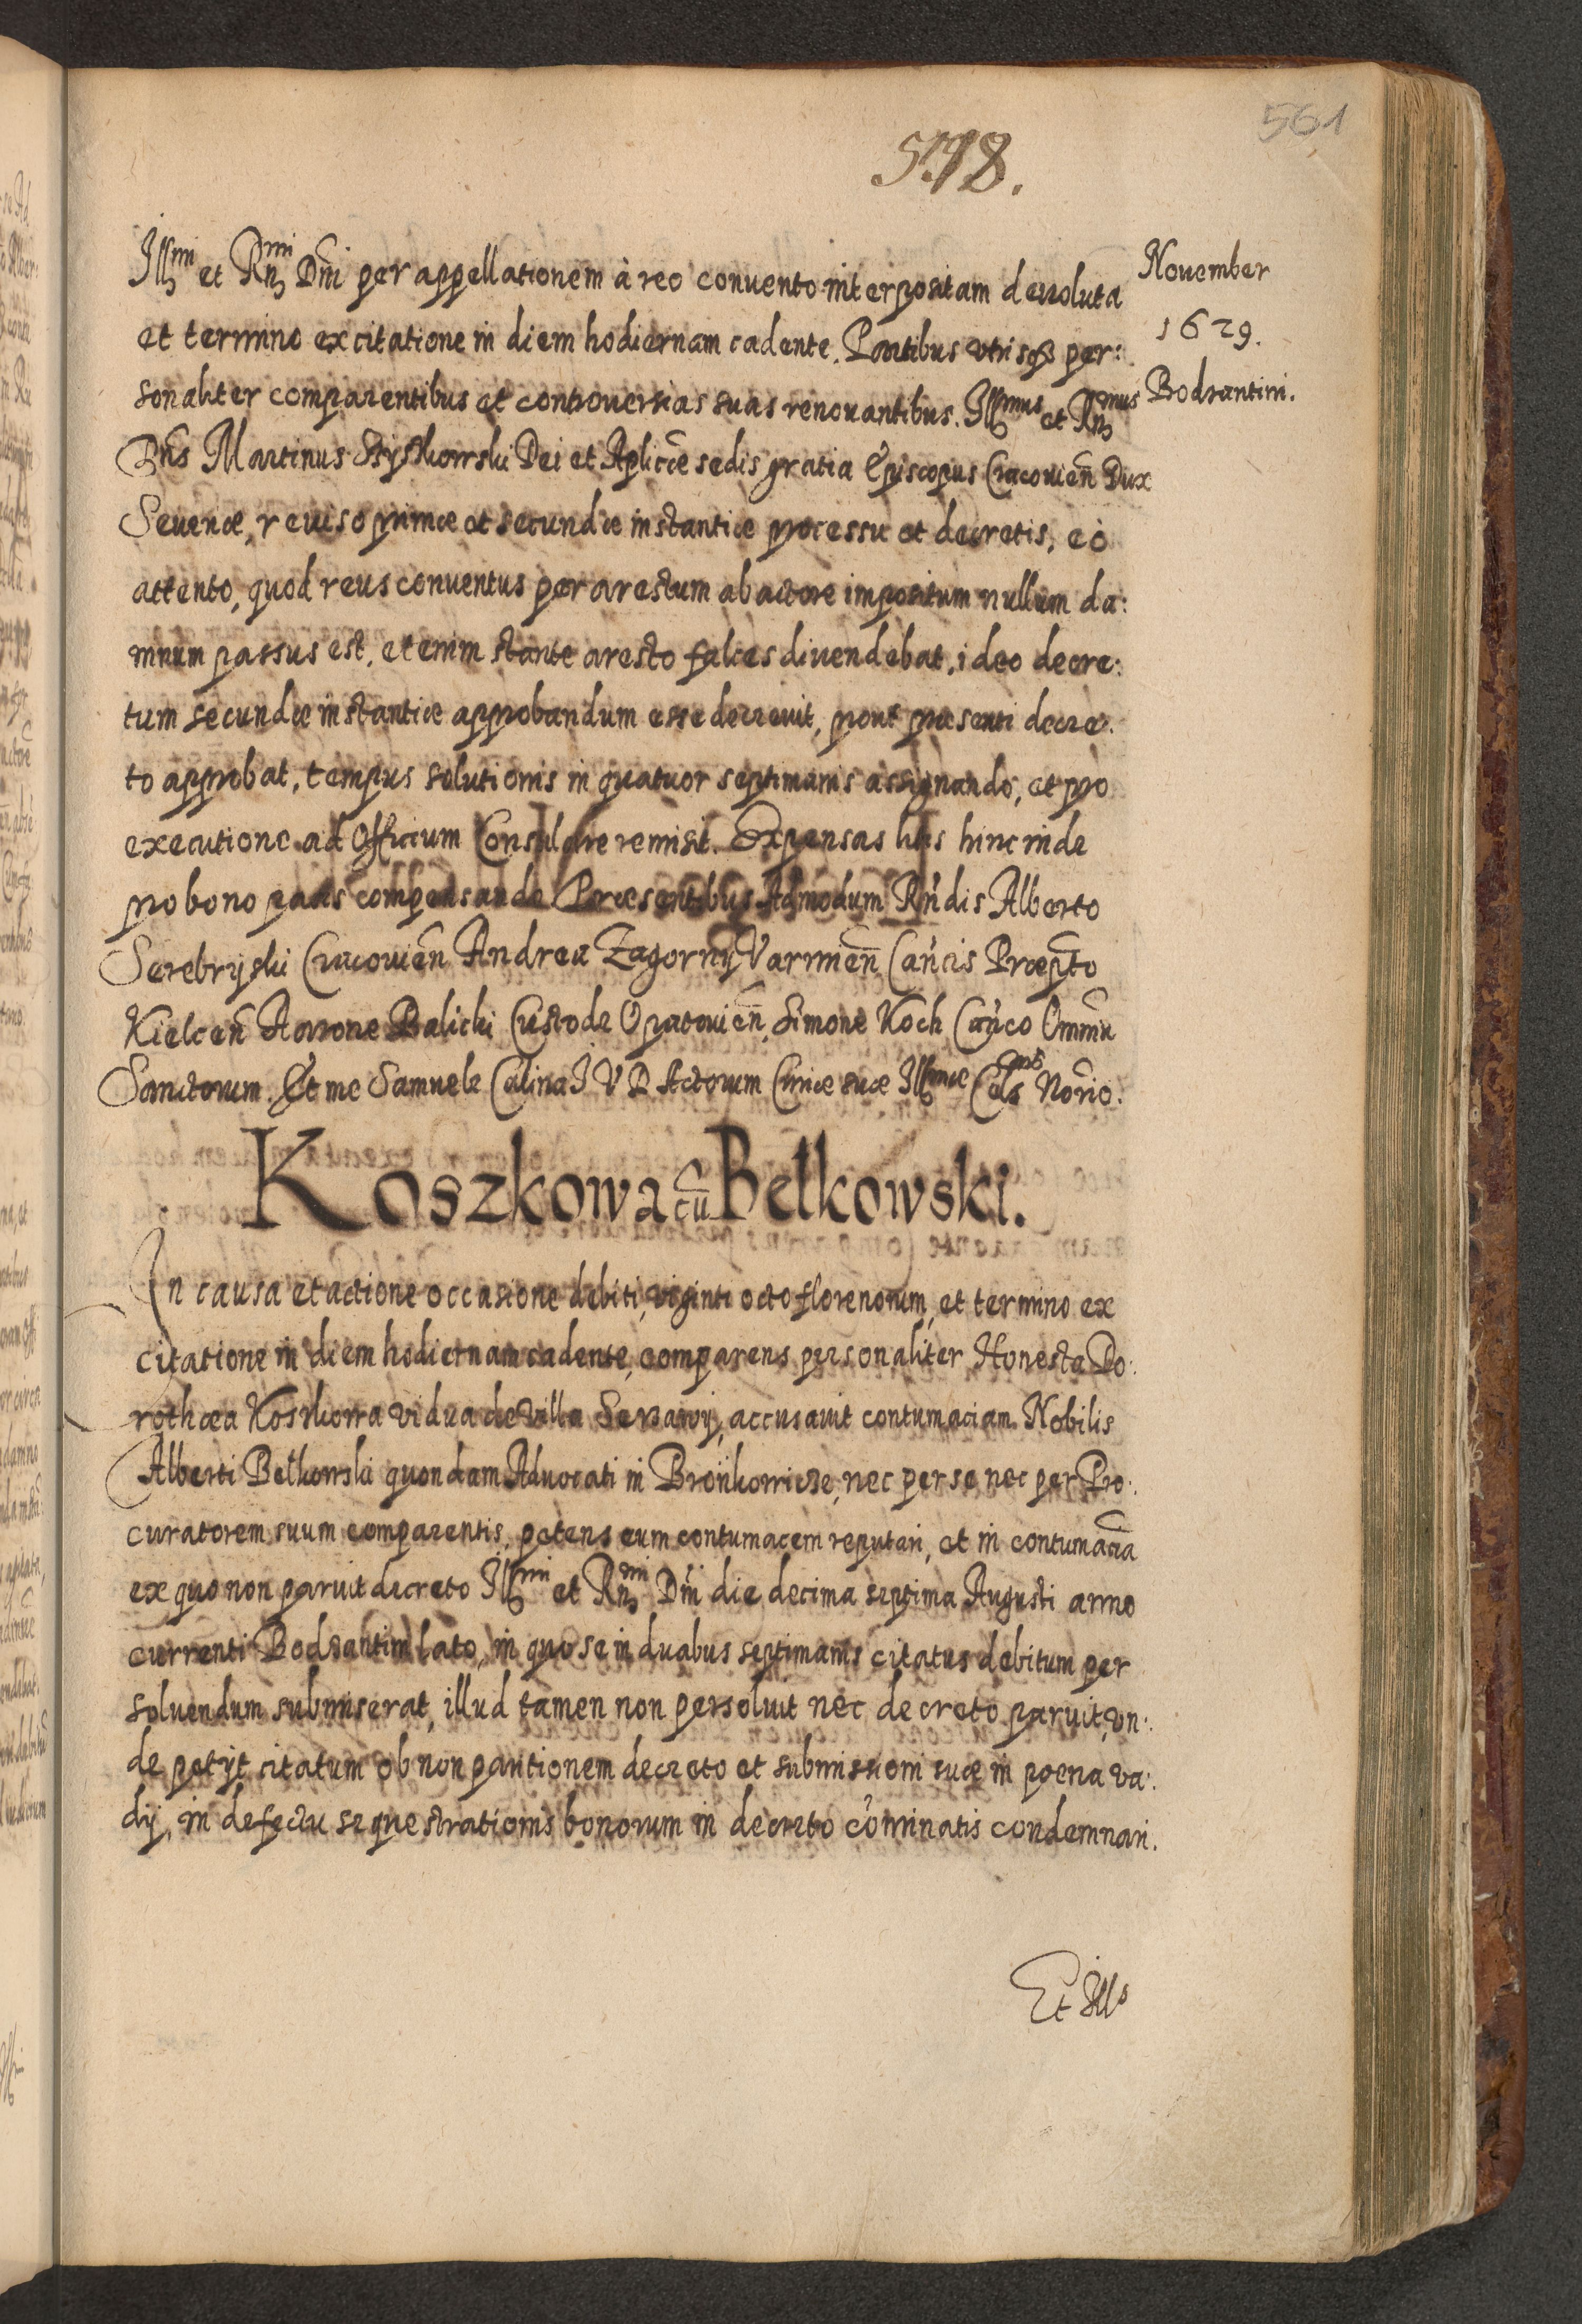 561
598.
November
1629.
Bodzantini.
Illmi et Rmi Dni per appellationem à reo conuento interpositam deuoluta
et termino ex citatione in diem hodiernam cadente. Partibus vtrisq per:
sonaliter comparentibus et controuersias suas renouantibus. Illmus et Rmus
Dns Martinus Szyszkowski Dei et Aplicæ sedis gratia Episcopus Cracouien Dux
Seueriæ, reuiso primæ et secundæ instantiæ processu et decretis, eò
attento, quod reus conuentus per arestum ab actore impositum nullum da:
mnum passus est, etenim stante aresto falces diuendebat, ideo decre:
tum secundæ instantiæ approbandum esse decreuit, prout præsenti decre:
to approbat, tempus solutionis in quatuor septimanis assignando, et pro
executione ad Officium Consulare remisit. Expensas litis hinc inde
pro bono pacis compensando Præsentibus Admodum Rndis Alberto
Serebryski Cracouien Andrea Zagorny Varmien Cancis Præpto
Kielcen Aarone Balicki Custode Opatouien, Simone Koch Canco Omniu
Sanctorum. Et me Samuele Calina I V D Actorum Curiæ suæ Illmæ Cels Norio.
Koszkowa cu Bełkowski.
In causa et actione occasione debiti, viginti octo florenorum, et termino ex
citatione in diem hodiernam cadente, comparens personaliter Honesta Do:
rothæa Koszkowa vidua de Villa accusauit contumaciam Nobilis
Alberti Bełkowski quondam Aduocati in nec per se nec per Pro:
curatorem suum comparentis, petens eum contumacem reputari, et in contumacia
ex quo non paruit decreto Illmi et Rmi Dni die decima septima Augusti anno
currenti Bodzantini lato, in quo se in duabus septimanis citatus debitum per
soluendum submiserat, illud tamen non persoluit nec decreto paruit, vn:
de petijt citatum ob non paritionem decreto et submissioni suæ in poena va:
dij, in defectu sequestrationis bonorum in decreto cominatis condemnari.
Et Ill